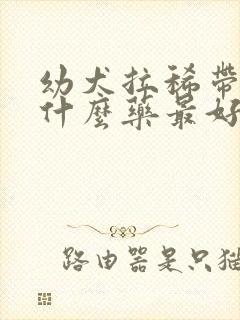 幼犬拉稀帶
什麼藥最好
路由器是只猫